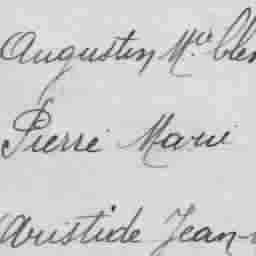 Augustin M.ie Clem
Pierre Marie
Aristide Jean-